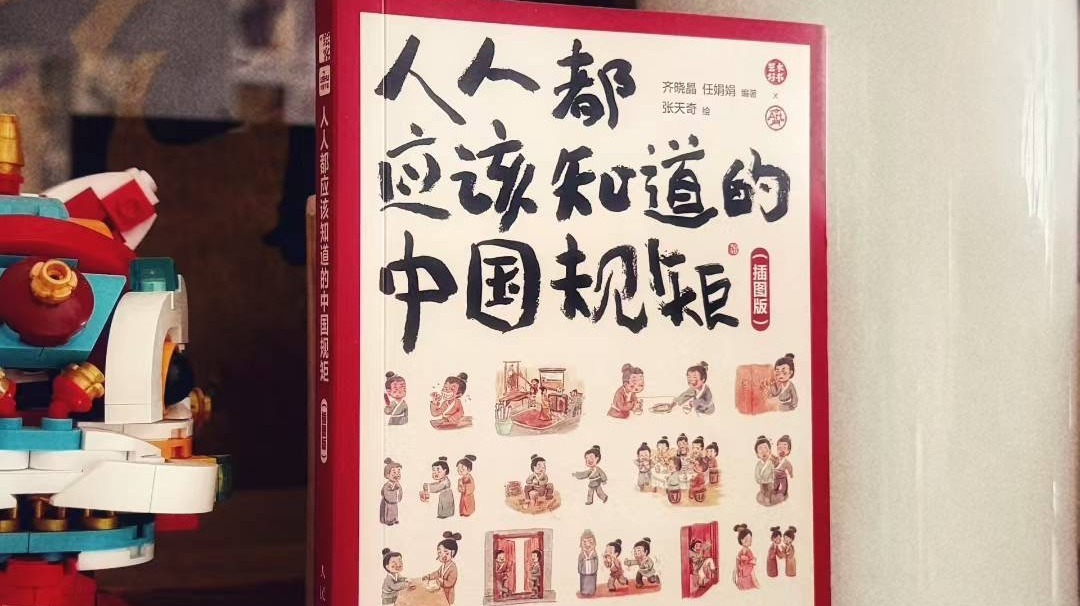 人人都
应该知道的
中国规矩
(插图版)
齐晓晶 任娟娟 编著
张天奇 绘
艺木好书
x
人人都应该知道的中国规矩
(插图版)